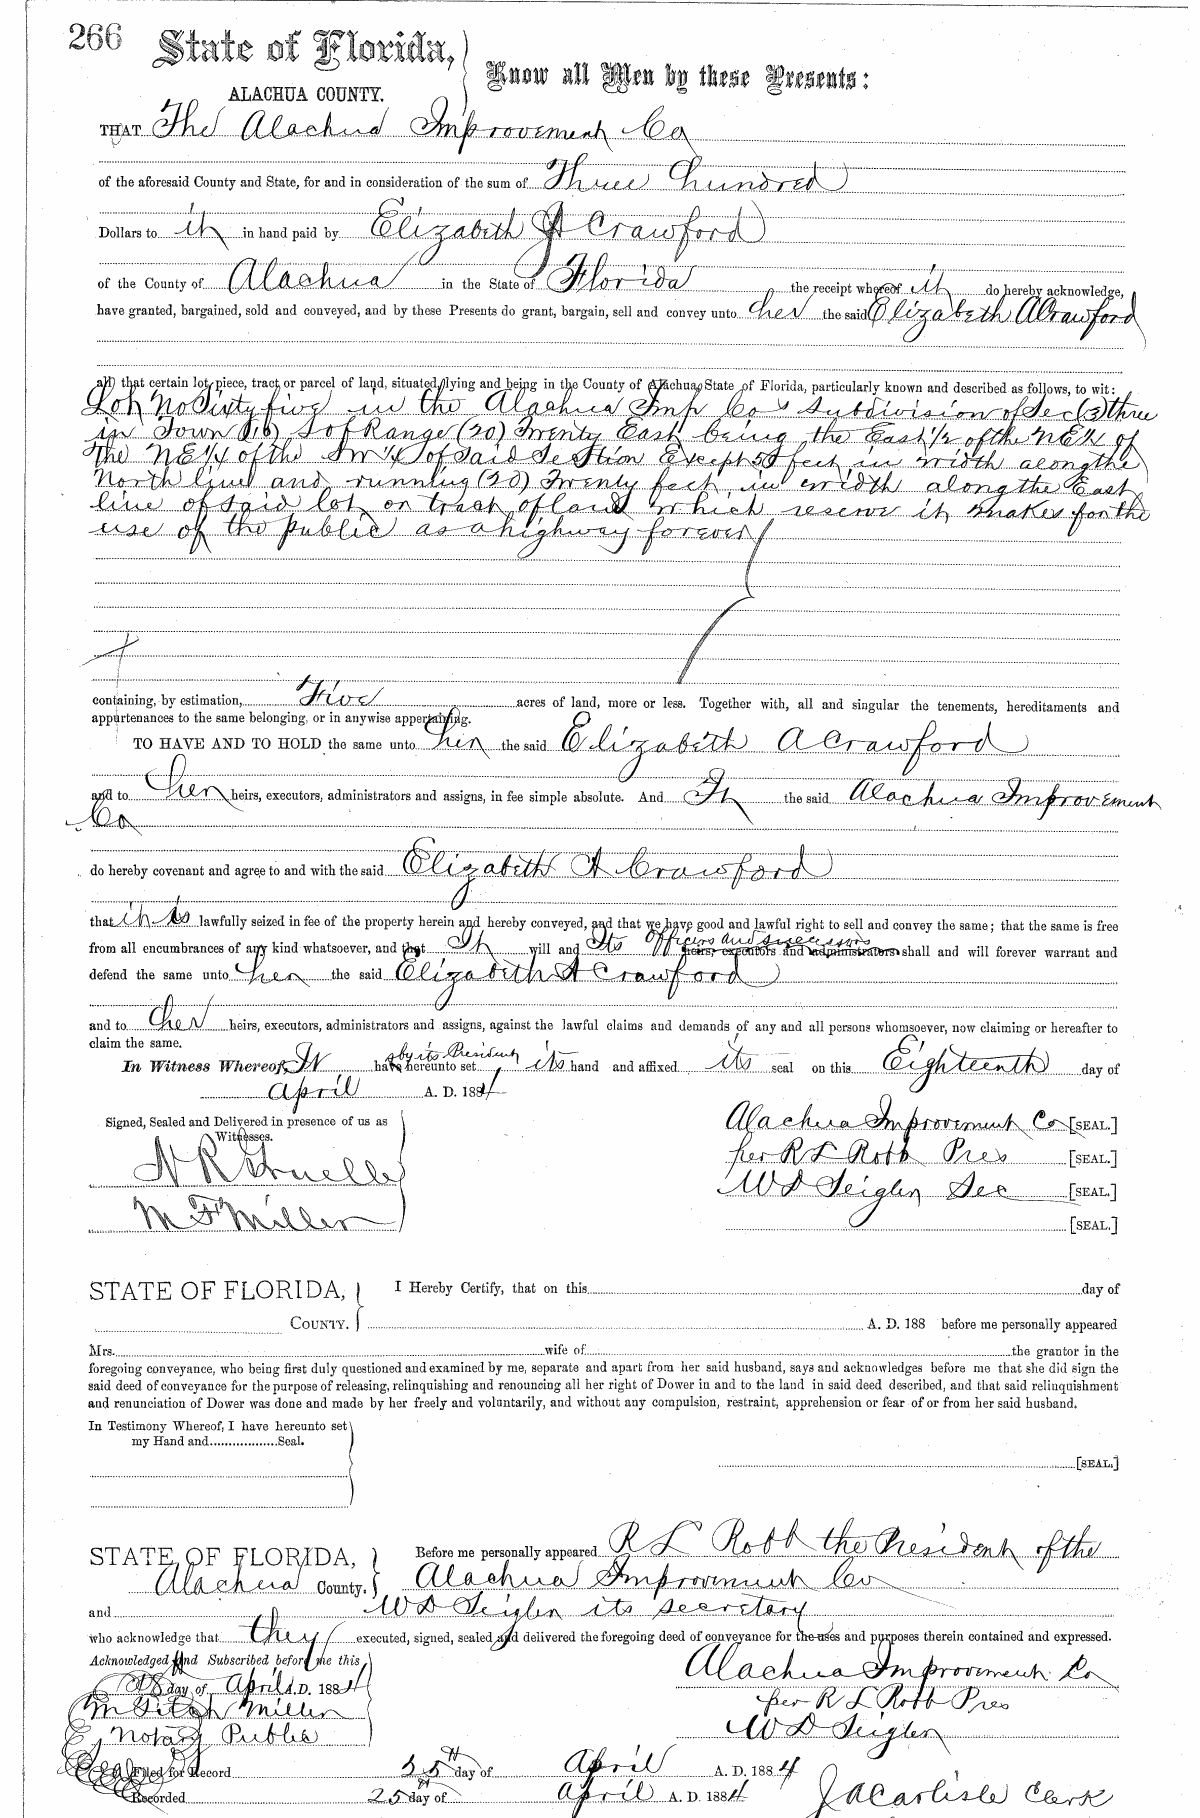 266 State of Florida, Know all Men by these Presents:
ALACHUA COUNTY.
THAT The Alachua Improvement Co
of the aforesaid County and State, for and in consideration of the sum of Three hundred
Dollars to it in hand paid by Elizabeth A Crawford
of the County of Alachua in the State of Florida the receipt whereof it do hereby acknowledge,
have granted, bargained, sold and conveyed, and by these Presents do grant, bargain, sell and convey unto her the said Elizabeth A Crawford
all that certain lot, piece, tract, or parcel of land, situated, lying and being in the County of Alachua, State of Florida, particularly known and described as follows, to wit:
Lot No Sixty five in the Alachua Imp Co's subdivision of Sec (3) three
in Town S of Range (20) Twenty East being the East 1/2 of the NE 1/4 of
the NE 1/4 of the SW 1/4 of said Section Except feet in width along the
North line and running (20) Twenty feet in width along the East
line of said lot or tract of land which reserve it makes for the
use of the public as a highway forever
containing, by estimation, Five acres of land, more or less. Together with, all and singular the tenements, hereditaments and
appurtenances to the same belonging, or in anywise appertaining.
TO HAVE AND TO HOLD the same unto her the said Elizabeth A Crawford
and to her heirs, executors, administrators and assigns, in fee simple absolute. And It the said Alachua Improvement
Co
do hereby covenant and agree to and with the said Elizabeth A Crawford
that it is lawfully seized in fee of the property herein and hereby conveyed, and that we have good and lawful right to sell and convey the same; that the same is free
officers and successors
from all encumbrances of any kind whatsoever, and that It will and Its heirs, executors and administrators shall and will forever warrant and
defend the same unto her the said Elizabeth A Crawford
and to her heirs, executors, administrators and assigns, against the lawful claims and demands of any and all persons whomsoever, now claiming or hereafter to
claim the same.
by its President
In Witness Whereof, It have hereunto set its hand and affixed its seal on this Eighteenth day of
April A. D. 1884
Signed, Sealed and Delivered in presence of us as Alachua Improvement Co [SEAL.]
Witnesses.
per R L Robb Pres [SEAL.]
N R W D Seigler Sec [SEAL.]
M F Miller [SEAL.]
STATE OF FLORIDA, I Hereby Certify, that on this day of
COUNTY. A. D. 188 before me personally appeared
Mrs. wife of the grantor in the
foregoing conveyance, who being first duly questioned and examined by me, separate and apart from her said husband, says and acknowledges before me that she did sign the
said deed of conveyance for the purpose of releasing, relinquishing and renouncing all her right of Dower in and to the land in said deed described, and that said relinquishment
and renunciation of Dower was done and made by her freely and voluntarily, and without any compulsion, restraint, apprehension or fear of or from her said husband.
In Testimony Whereof, I have hereunto set
my Hand and..................Seal.
[SEAL.]
STATE OF FLORIDA, Before me personally appeared R L Robb the President of the
Alachua County. Alachua Improvement Co
and W D Seigler its secretary
who acknowledge that they executed, signed, sealed and delivered the foregoing deed of conveyance for the uses and purposes therein contained and expressed.
Acknowledged and Subscribed before me this Alachua Improvement Co
18 day of April A.D. 1884 per R L Robb Pres
M Miller W D Seigler
Notary Public
Filed for Record 25th day of April A. D. 1884
Recorded 25th day of April A. D. 1884 J A Carlisle Clerk